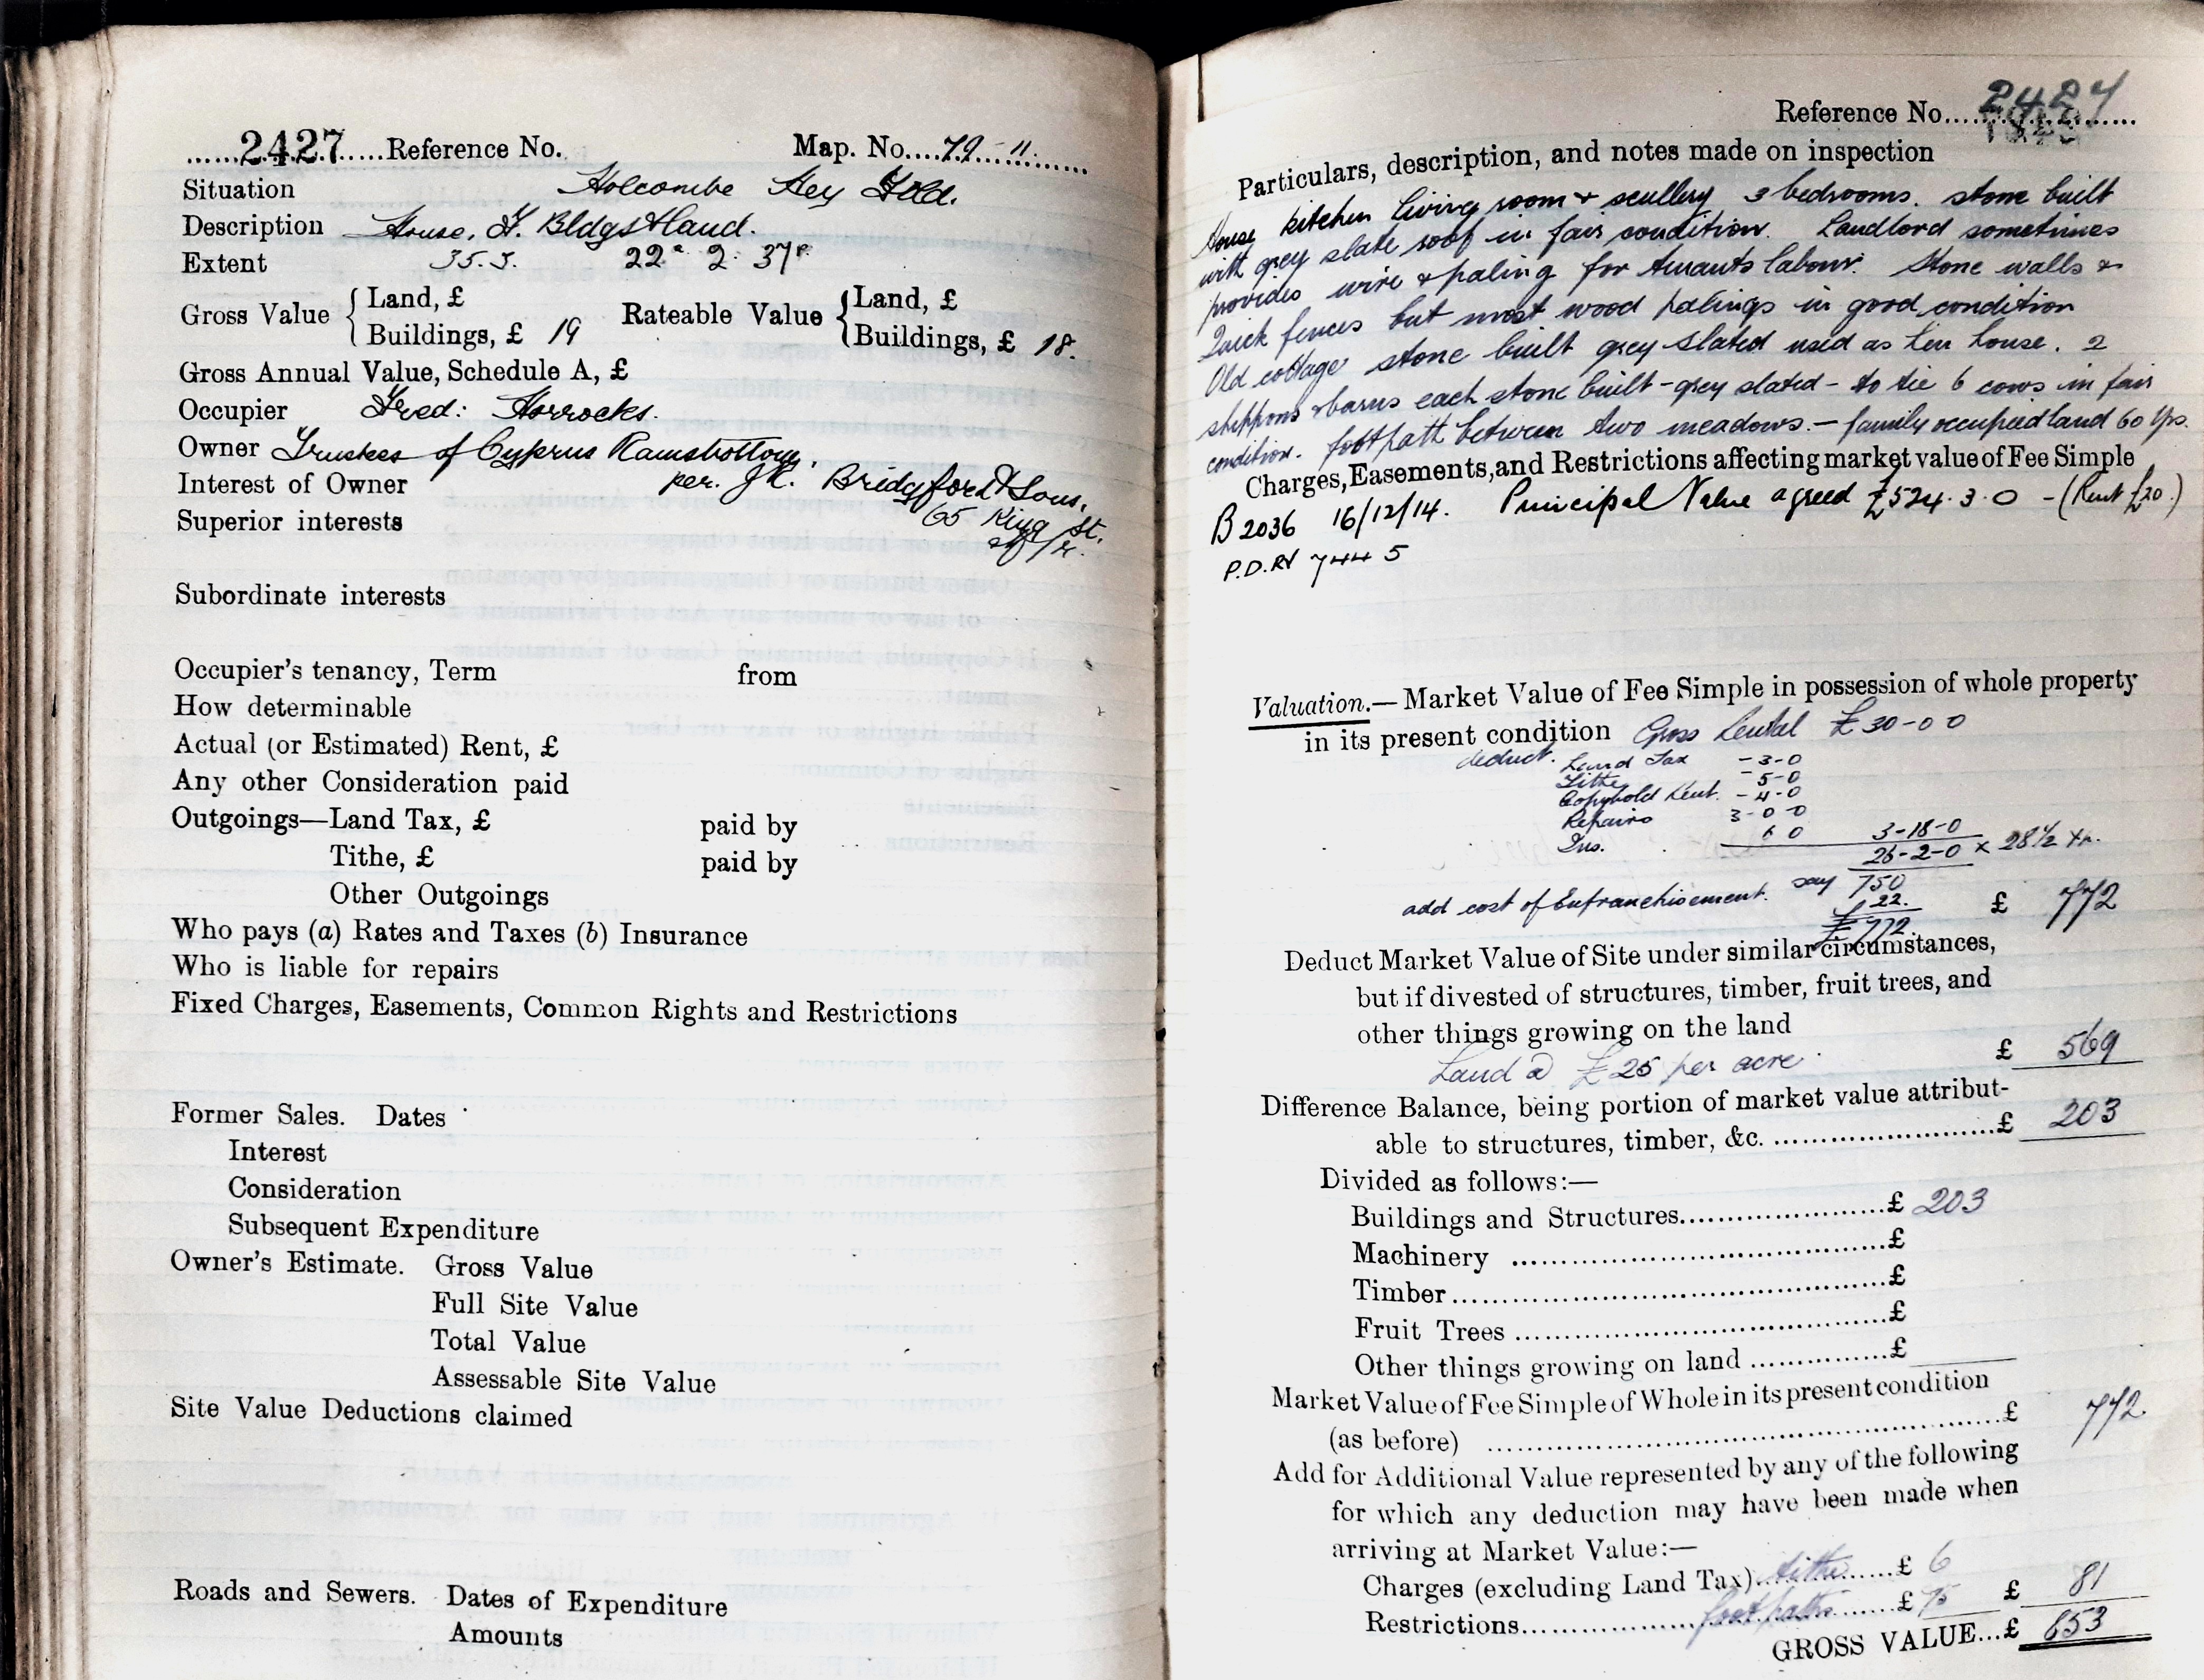 2427 Reference No. Map. No. 79-11.
Situation Holcombe Hey Fold.
Description House, F. Bldgs & Land.
Extent 35.3. 22a 2. 37p.
Gross Value { Land, £ Rateable Value { Land, £
Buildings, £ 19 Buildings, £ 18.
Gross Annual Value, Schedule A, £
Occupier Fred: Horrocks.
Owner Trustees of Cyprus Ramsbottom,
Interest of Owner per. J.R. Bridgford & Sons,
Superior interests 65 King St.
Subordinate interests
Occupier's tenancy, Term from
How determinable
Actual (or Estimated) Rent, £
Any other Consideration paid
Outgoings—Land Tax, £ paid by
Tithe, £ paid by
Other Outgoings
Who pays (a) Rates and Taxes (b) Insurance
Who is liable for repairs
Fixed Charges, Easements, Common Rights and Restrictions
Former Sales. Dates
Interest
Consideration
Subsequent Expenditure
Owner's Estimate. Gross Value
Full Site Value
Total Value
Assessable Site Value
Site Value Deductions claimed
Roads and Sewers. Dates of Expenditure
Amounts
Reference No. 2427
Particulars, description, and notes made on inspection
House kitchen living room & scullery 3 bedrooms. stone built
with grey slate roof in fair condition. Landlord sometimes
provides wire & paling for tenants labour. Stone walls &
Quick fences but most wood palings in good condition
Old cottage stone built grey slated used as hen house. 2
shippons & barns each stone built - grey slated - to tie 6 cows in fair
condition. footpath between two meadows. — family occupied land 60 yrs.
Charges, Easements, and Restrictions affecting market value of Fee Simple
B 2036 16/12/14. Principal Value agreed £524.3.0 - (Rent £20)
P.D. 7445
Valuation.—Market Value of Fee Simple in possession of whole property
in its present condition Gross Rental £30-0-0
deduct. Land Tax -3-0
Tithe -5-0
Copyhold Rent. -4-0
Repairs 3-0-0
Ins. 6 0 3-18-0
26-2-0 x 28½ Yrs.
say 750
add cost of Enfranchisement. 22. £ 772
£772
Deduct Market Value of Site under similar circumstances,
but if divested of structures, timber, fruit trees, and
other things growing on the land
Land @ £25 per acre £ 569
Difference Balance, being portion of market value attribut-
able to structures, timber, &c. £ 203
Divided as follows:—
Buildings and Structures £ 203
Machinery £
Timber £
Fruit Trees £
Other things growing on land £
Market Value of Fee Simple of Whole in its present condition
(as before) £ 772
Add for Additional Value represented by any of the following
for which any deduction may have been made when
arriving at Market Value:—
Charges (excluding Land Tax) tithe £ 6
Restrictions footpaths £ 75 £ 81
GROSS VALUE...£ 853